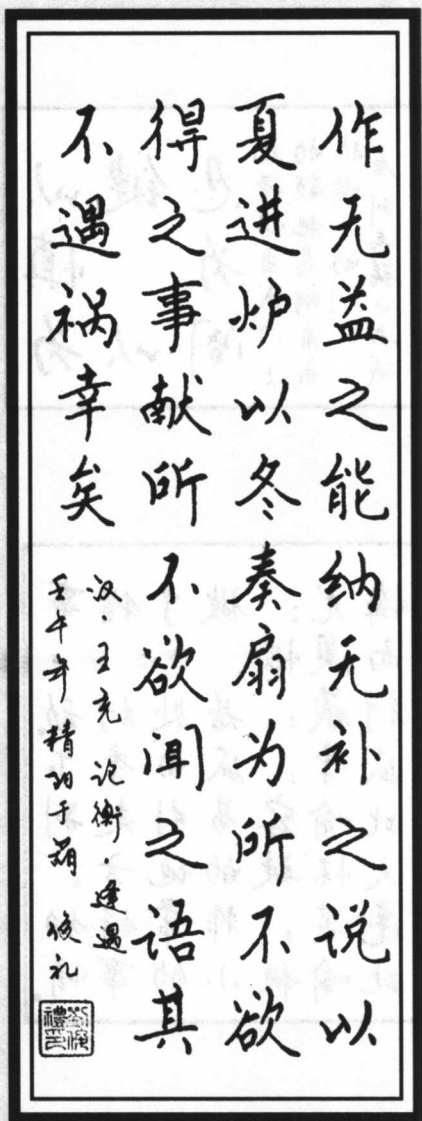 作无益之能纳无补之说以
夏进炉以冬奏扇为所不欲
得之事献所不欲闻之语其
不遇祸幸矣
汉·王充论衡·逢遇
壬午年精
俊礼